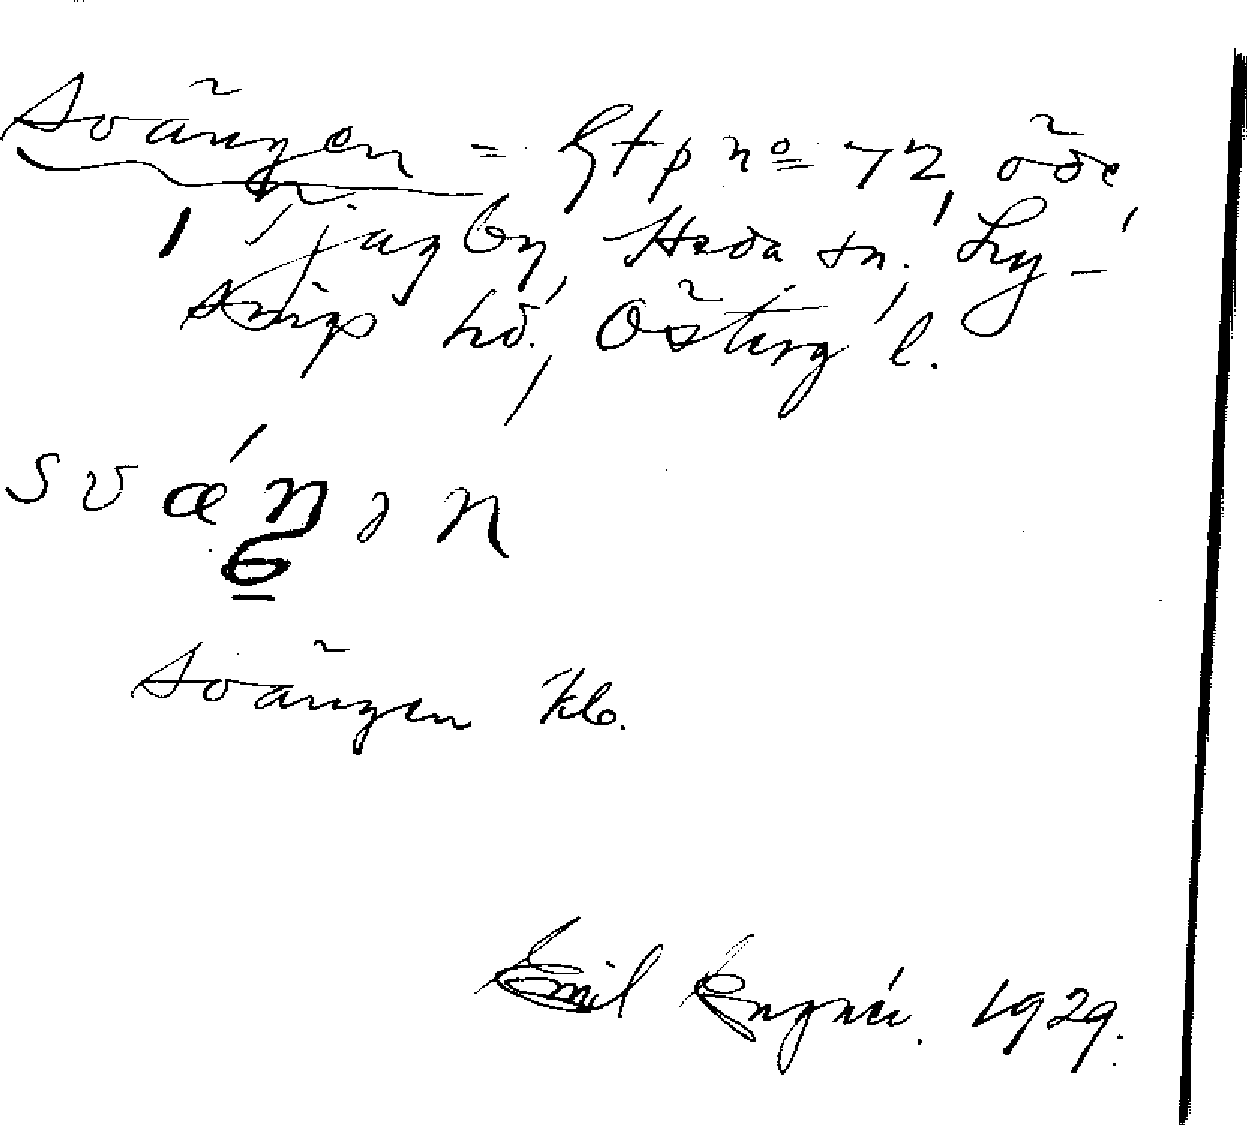 Svängen = Stp nº 72, öde,
i Tjugby, Heda sn. Ly-
sings hd., Österg l.
svǽŋən
Svängen kb.
Emil 1929.